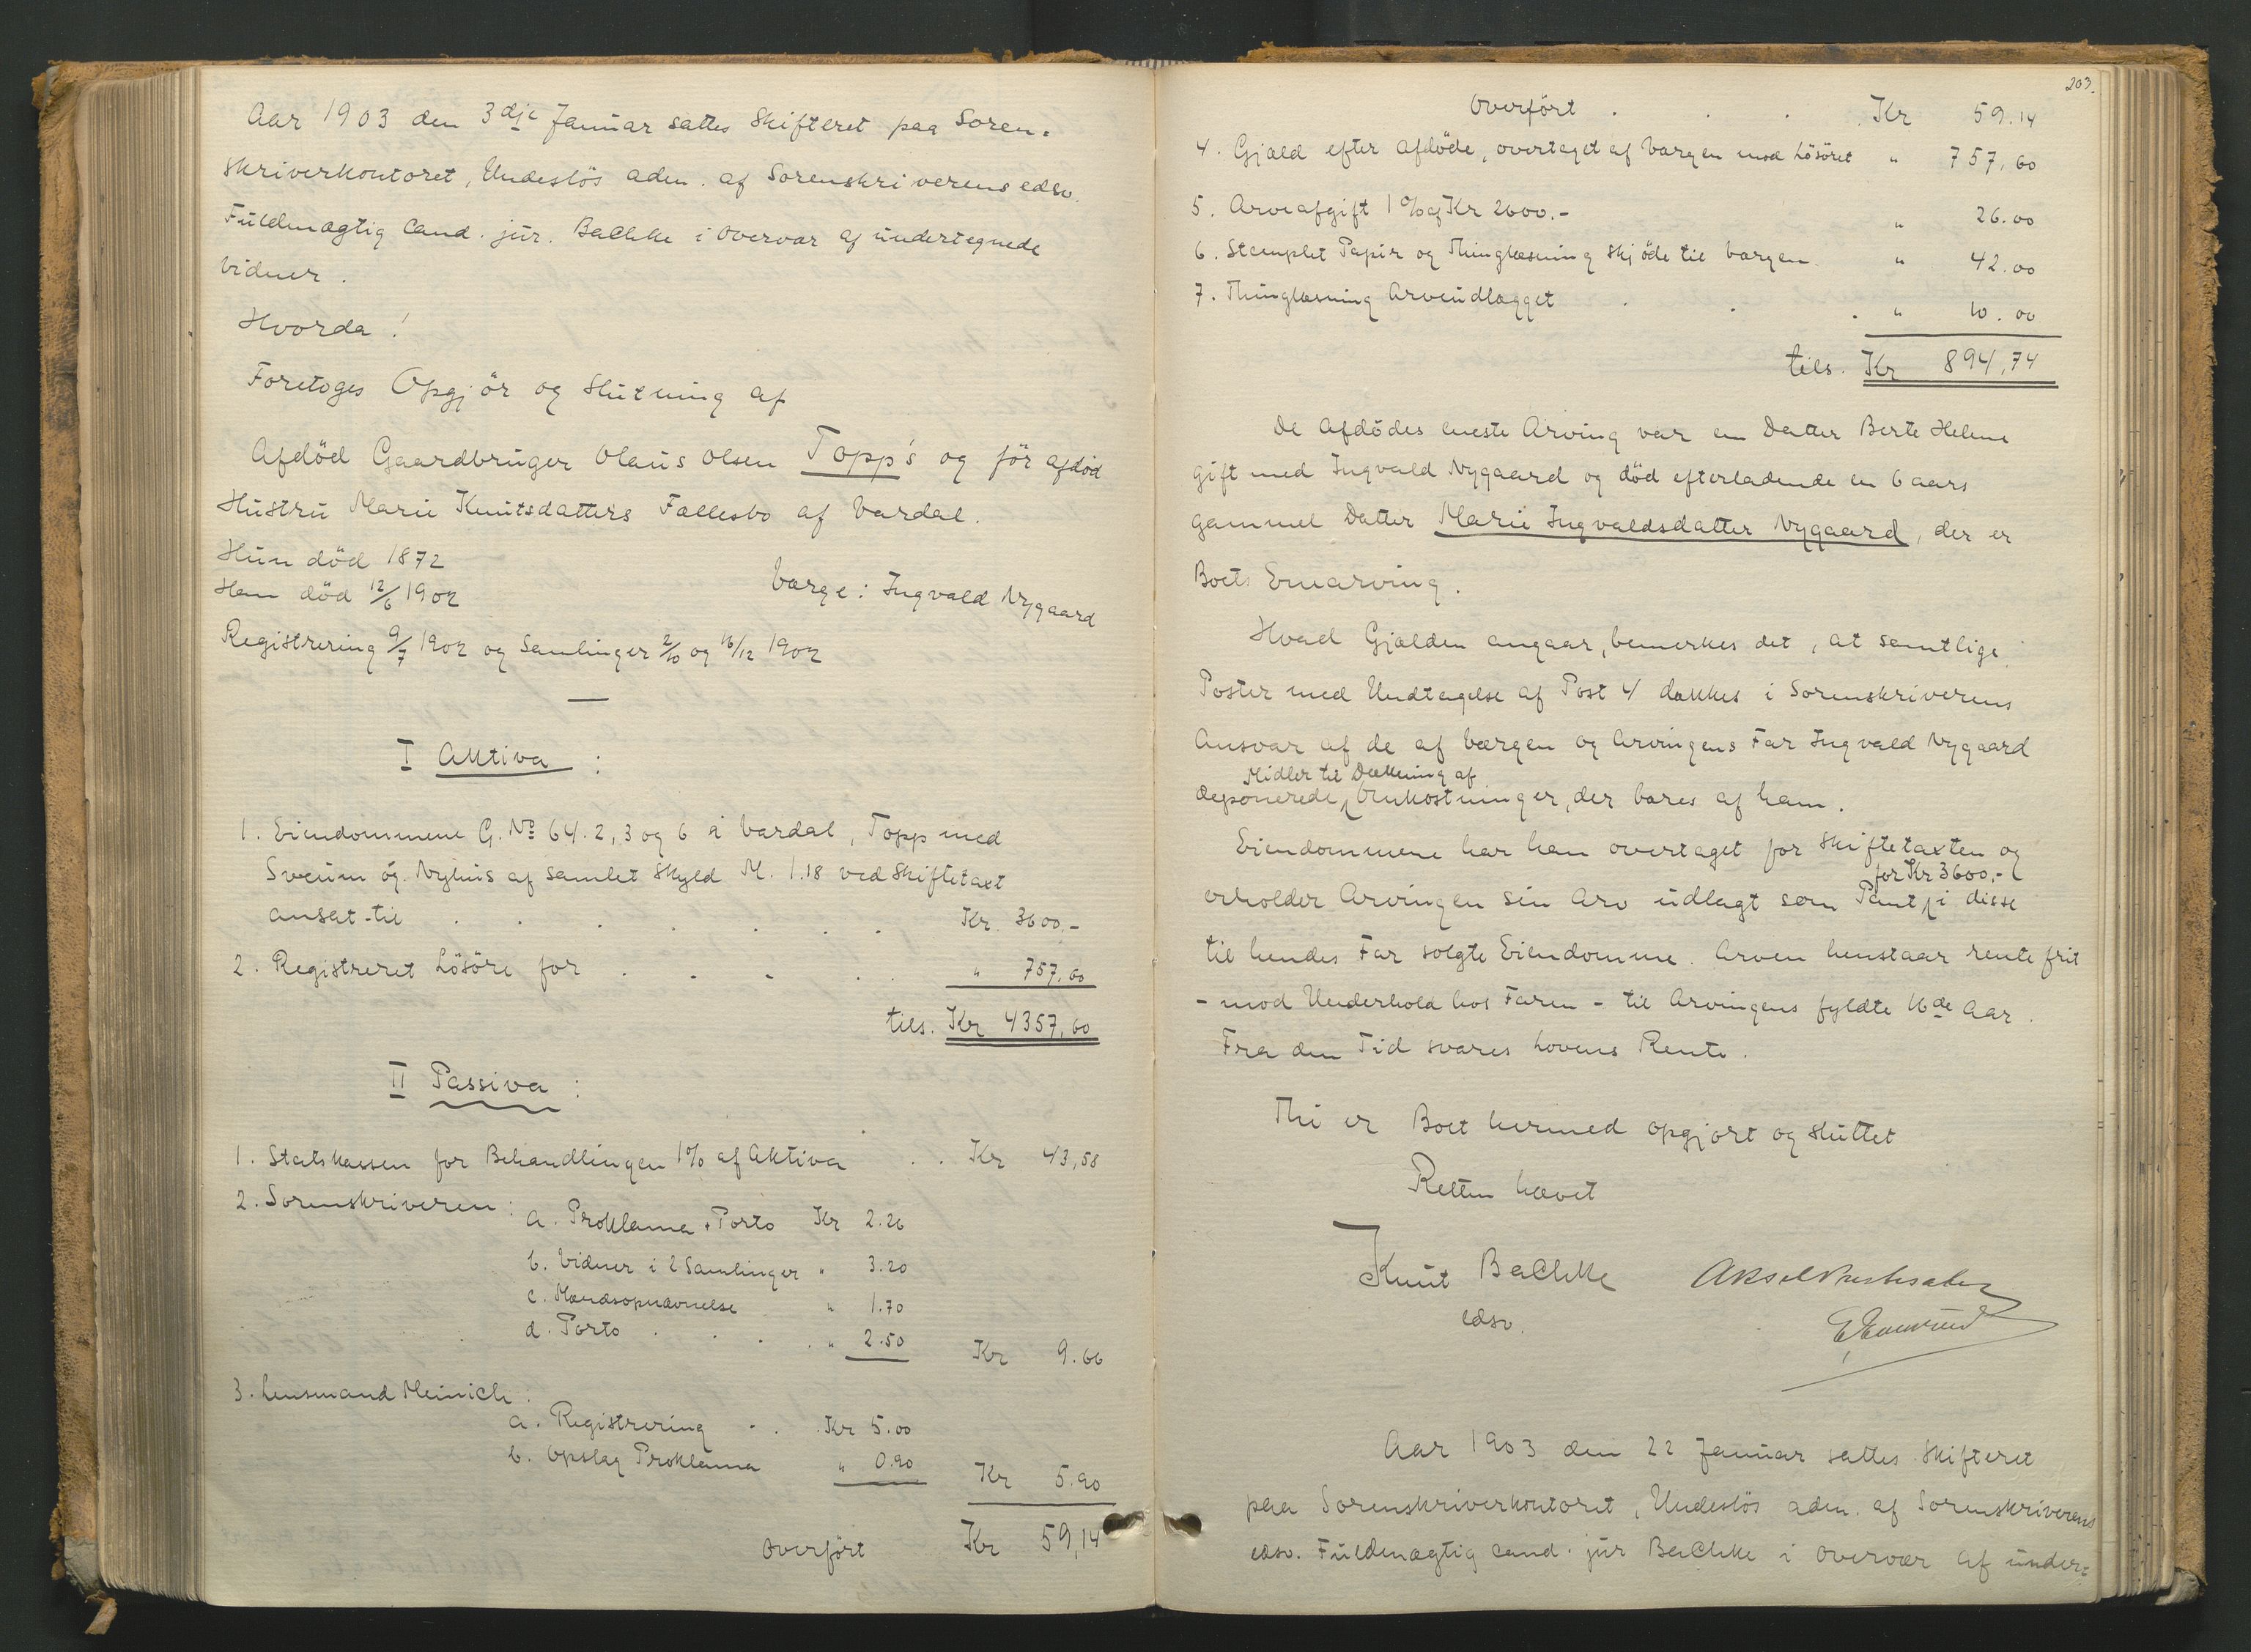 Aar 1903 den 3dje Januar sattes Skifteret paa Soren=
skriverkontoret, Undeslös adm. af Sorenskriverens edsv.
Fuldmægtig Cand. jur. Bachke i Overvær af undertegnede
Vidner.
Hvorda!
Foretoges Opgjör og Slutning af
Afdöd Gaardbruger Olaus Olsen Topp's og för afdöd
Hustru Marie Knutsdatters Fællesbo af Vardal.
Hun död 1872
Han död 12/6 1902
Værge: Ingvald Nygaard
Registrering 9/7 1902 og Samlinger 2/10 og 16/12 1902
I Aktiva:
1. Eiendommene G. No 64. 2, 3 og 6 i Vardal, Topp med
Sveum og Nyhus af samlet Skyld M. 1.18 ved Skiftetaxt
ansat til . . . . . . . Kr. 3600.-
2. Registreret Lösöre for . . . . . " 757,60
tils. Kr 4357,60
II Passiva:
1. Statskassen for Behandlingen 1% af Aktiva . . Kr 43,58
2. Sorenskriveren:
a. Proklama + Porto Kr 2.26
b. Vidner i 2 Samlinger " 3.20
c. Mændsopnævnelse " 1.70
d. Porto . . . . " 2.50 Kr 9.66
3. Lensmand Meinich:
a. Registrering . . Kr 5.00
b. Opslag Proklama " 0.90 Kr 5.90
Overfört Kr 59,14
203.
Overfört . . . . Kr 59.14
4. Gjæld efter Afdöde, overtaget af Værgen mod Lösöret " 757,60
5. Arveafgift 1% af Kr 2600.- " 26.00
6. Stemplet Papir og Thinglæsning Skjöde til Værgen " 42.00
7. Thinglæsning Arveudlægget . . . " 10.00
tils. Kr 894,74
De Afdödes eneste Arving var en Datter Berte Helene
gift med Ingvald Nygaard og död efterladende en 6 aars
gammel Datter Marie Ingvaldsdatter Nygaard, der er
Boets Enearving.
Hvad Gjælden angaar, bemerkes det, at samtlige
Poster med Undtagelse af Post 4 dækkes i Sorenskriverens
Ansvar af de af Værgen og Arvingens Far Ingvald Nygaard
Midler til Dækning af
deponerede Omkostninger, der bæres af ham.
Eiendommene har han overtaget for Skiftetaxten og
for Kr 3600,-
erholder Arvingen sin Arv udlagt som Pant i disse
til hendes Far solgte Eiendomme. Arven henstaar rentefrit
- mod Underhold hos Faren - til Arvingens fyldte 16de Aar.
Fra den Tid svares Lovens Rente.
Thi er Boet hermed opgjort og sluttet
Retten hævet
Knut Bachke
edsv.
Aksel
Aar 1903 den 22 Januar sattes Skifteret
paa Sorenskriverkontoret, Undeslös adm. af Sorenskriverens
edsv. Fuldmægtig cand. jur Bachke i Overvær af under=